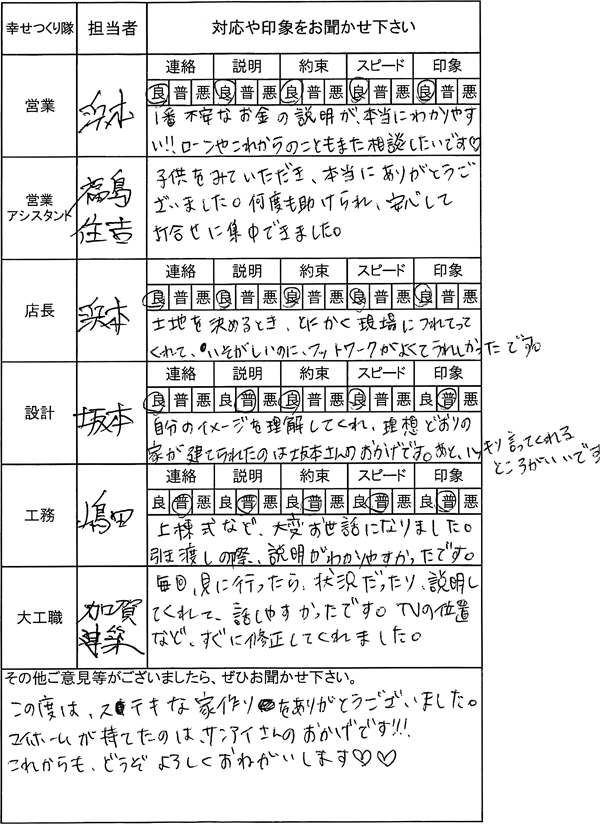 幸せつくり隊 担当者 対応や印象をお聞かせ下さい
営業 浜本
連絡 説明 約束 スピード 印象
良 普 悪 良 普 悪 良 普 悪 良 普 悪 良 普 悪
1番不安なお金の説明が、本当にわかりやす
い!!ローンやこれからのこともまた相談したいです♡
営業
アシスタント
福島
住吉
子供をみていただき、本当にありがとうご
ざいました。何度も助けられ、安心して
打合せに集中できました。
店長 浜本
連絡 説明 約束 スピード 印象
良 普 悪 良 普 悪 良 普 悪 良 普 悪 良 普 悪
土地を決めるとき、とにかく現場につれてって
くれて、いそがしいのに、フットワークがよくてうれしかったです。
設計 坂本
連絡 説明 約束 スピード 印象
良 普 悪 良 普 悪 良 普 悪 良 普 悪 良 普 悪
自分のイメージを理解してくれ、理想どおりの
家が建てられたのは坂本さんのおかげです。あと、ハッキリ言ってくれる
ところがいいです
工務 嶋田
連絡 説明 約束 スピード 印象
良 普 悪 良 普 悪 良 普 悪 良 普 悪 良 普 悪
上棟式など、大変お世話になりました。
引き渡しの際、説明がわかりやすかったです。
大工職
加賀
建築
毎回、見に行ったら、状況だったり、説明し
てくれて、話しやすかったです。TVの位置
など、すぐに修正してくれました。
その他ご意見等がございましたら、ぜひお聞かせ下さい。
この度は、ステキな家作りをありがとうございました。
マイホームが持てたのは、サンアイさんのおかげです!!!
これからも、どうぞよろしくおねがいします♡♡